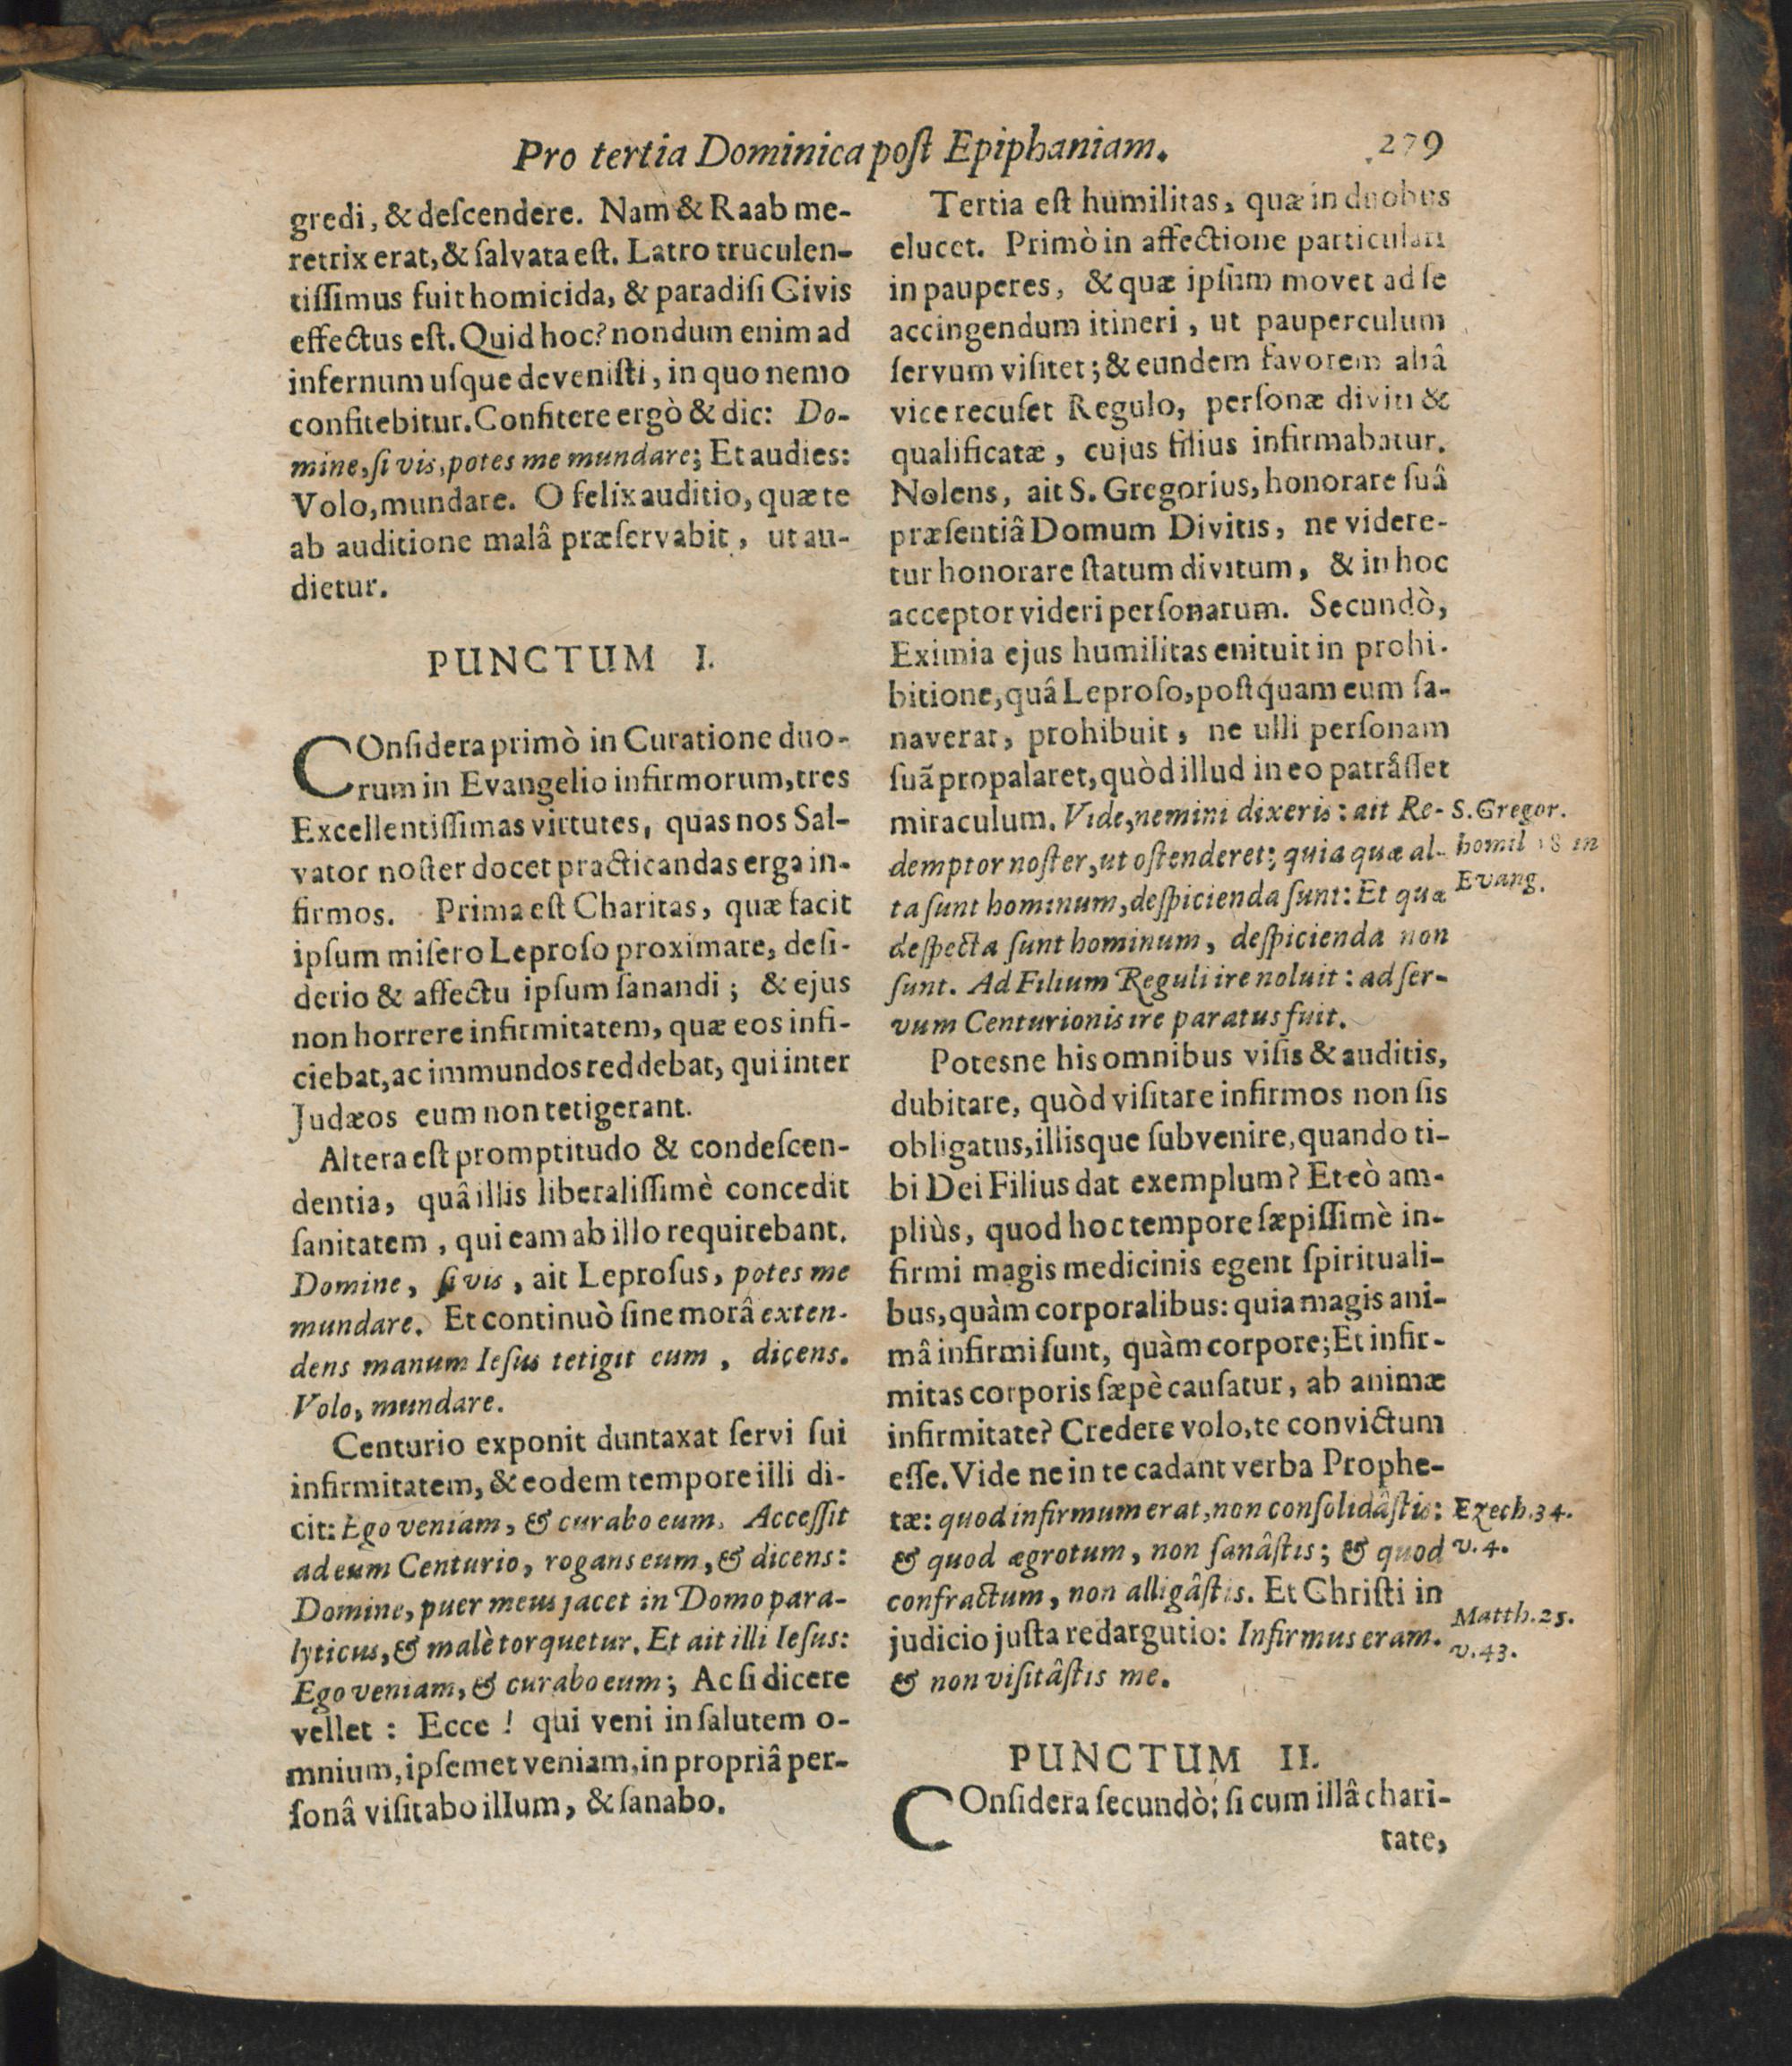 Pro tertia Dominica poſt Epiphaniam. 279
gredi, & deſcendere. Nam & Raab me-
retrix erat, & ſalvata eſt. Latro truculen-
tiſſimus fuit homicida, & paradiſi Civis
effectus eſt. Quid hoc? nondum enim ad
infernum uſque deveniſti, in quo nemo
confitebitur. Confitere ergò & dic: Do-
mine, ſi vis, potes me mundare; Et audies:
Volo, mundare. O felix auditio, quæ te
ab auditione malâ præſervabit, ut au-
dietur.
PUNCTUM I.
COnſidera primò in Curatione duo-
rum in Evangelio infirmorum, tres
Excellentiſſimas virtutes, quas nos Sal-
vator noſter docet practicandas erga in-
firmos. Prima eſt Charitas, quæ facit
ipſum miſero Leproſo proximare, deſi-
derio & affectu ipſum ſanandi; & ejus
non horrere infirmitatem, quæ eos infi-
ciebat, ac immundos reddebat, qui inter
Judæos eum non tetigerant.
Altera eſt promptitudo & condeſcen-
dentia, quâ illis liberaliſſimè concedit
ſanitatem, qui eam ab illo requirebant.
Domine, ſi vis, ait Leproſus, potes me
mundare. Et continuò ſine morâ exten-
dens manum Ieſus tetigit eum, dicens.
Volo, mundare.
Centurio exponit duntaxat ſervi ſui
infirmitatem, & eodem tempore illi di-
cit: Ego veniam, & curabo eum. Acceſſit
ad eum Centurio, rogans eum, & dicens:
Domine, puer meus jacet in Domo para-
lyticus, & malè torquetur. Et ait illi Ieſus:
Ego veniam, & curabo eum; Ac ſi dicere
vellet: Ecce! qui veni in ſalutem o-
mnium, ipſemet veniam, in propriâ per-
ſonâ viſitabo illum, & ſanabo.
Tertia eſt humilitas, quæ in duobus
elucet. Primò in affectione particulari
in pauperes, & quæ ipſum movet ad ſe
accingendum itineri, ut pauperculum
ſervum viſitet; & eundem favorem aliâ
vice recuſet Regulo, perſonæ diviti &
qualificatæ, cujus filius infirmabatur.
Nolens, ait S. Gregorius, honorare ſuâ
præſentiâ Domum Divitis, ne videre-
tur honorare ſtatum divitum, & in hoc
acceptor videri perſonarum. Secundò,
Eximia ejus humilitas enituit in prohi-
bitione, quâ Leproſo, poſtquam eum ſa-
naverat, prohibuit, ne ulli perſonam
ſuã propalaret, quòd illud in eo patrâſſet
miraculum. Vide, nemini dixeris: ait Re-
demptor noſter, ut oſtenderet; quia quæ al-
ta ſunt hominum, deſpicienda ſunt: Et quæ
deſpecta ſunt hominum, deſpicienda non
ſunt. Ad Filium Reguli ire noluit: ad ſer-
vum Centurionis ire paratus fuit.
S. Gregor.
homil 18 in
Evang.
Potesne his omnibus viſis & auditis,
dubitare, quòd viſitare infirmos non ſis
obligatus, illisque ſubvenire, quando ti-
bi Dei Filius dat exemplum? Et eò am-
pliùs, quod hoc tempore ſæpiſſimè in-
firmi magis medicinis egent ſpirituali-
bus, quàm corporalibus: quia magis ani-
mâ infirmi ſunt, quàm corpore; Et infir-
mitas corporis ſæpè cauſatur, ab animæ
infirmitate? Credere volo, te convictum
eſſe. Vide ne in te cadant verba Prophe-
tæ: quod infirmum erat, non conſolidâſtis:
& quod ægrotum, non ſanâſtis; & quod
confractum, non alligâſtis. Et Chriſti in
judicio juſta redargutio: Infirmus eram.
& non viſitâſtis me.
Ezech. 34.
v. 4.
Matth. 25.
v. 43.
PUNCTUM II.
COnſidera ſecundò; ſi cum illâ chari-
tate,